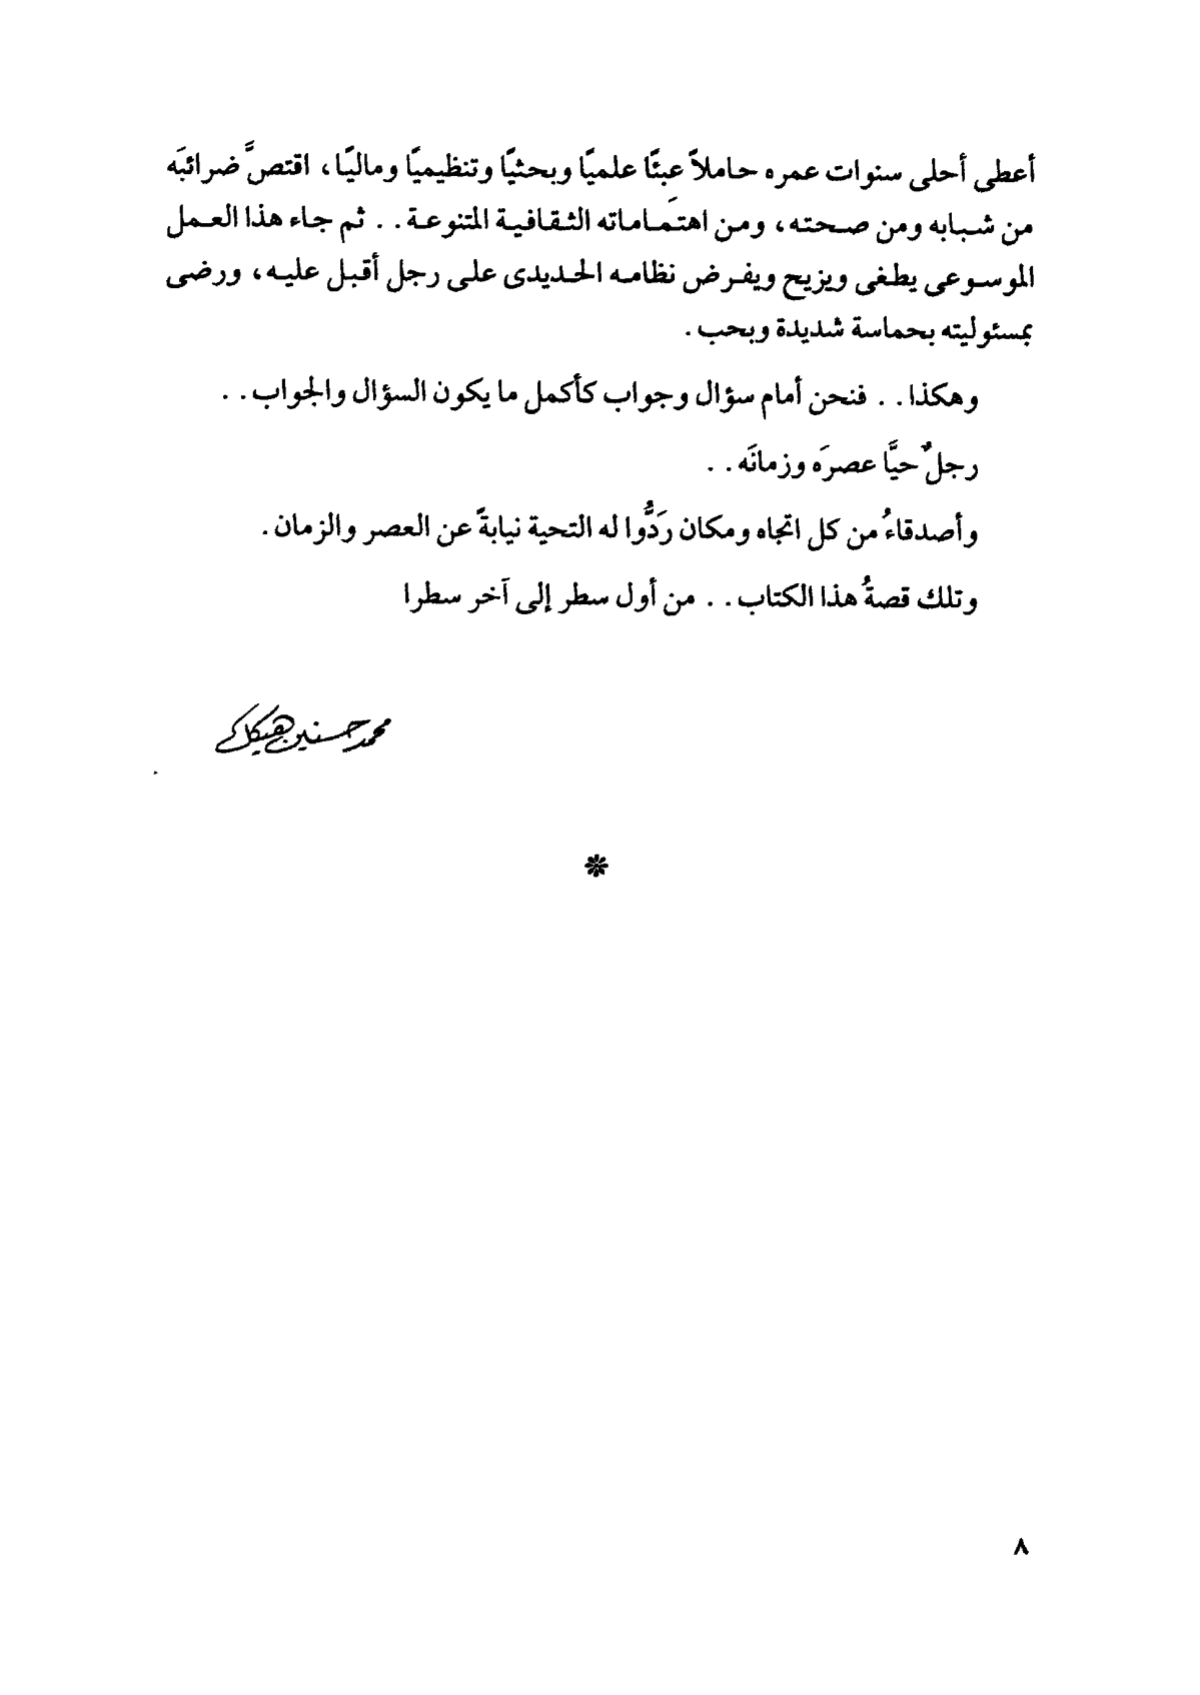 أعطى أحلى سنوات عمره حاملاً عبئًا علميًا وبحثيًا وتنظيميًا وماليًا، اقتصَّ ضرائبَه
من شبابه ومن صحته، ومن اهتماماته الثقافية المتنوعة. . ثم جاء هذا العمل
الموسوعى يطغى ويزيح ويفرض نظامه الحديدى على رجل أقبل عليه، ورضى
بمسئوليته بحماسة شديدة وبحب.
وهكذا. . فنحن أمام سؤال وجواب كأكمل ما يكون السؤال والجواب. .
رجلٌ حيَّا عصرَه وزمانَه. .
وأصدقاءُ من كل اتجاه ومكان رَدُّوا له التحية نيابةً عن العصر والزمان.
وتلك قصةُ هذا الكتاب. . من أول سطر إلى آخر سطرا
محمد حسنين هيكل
٨